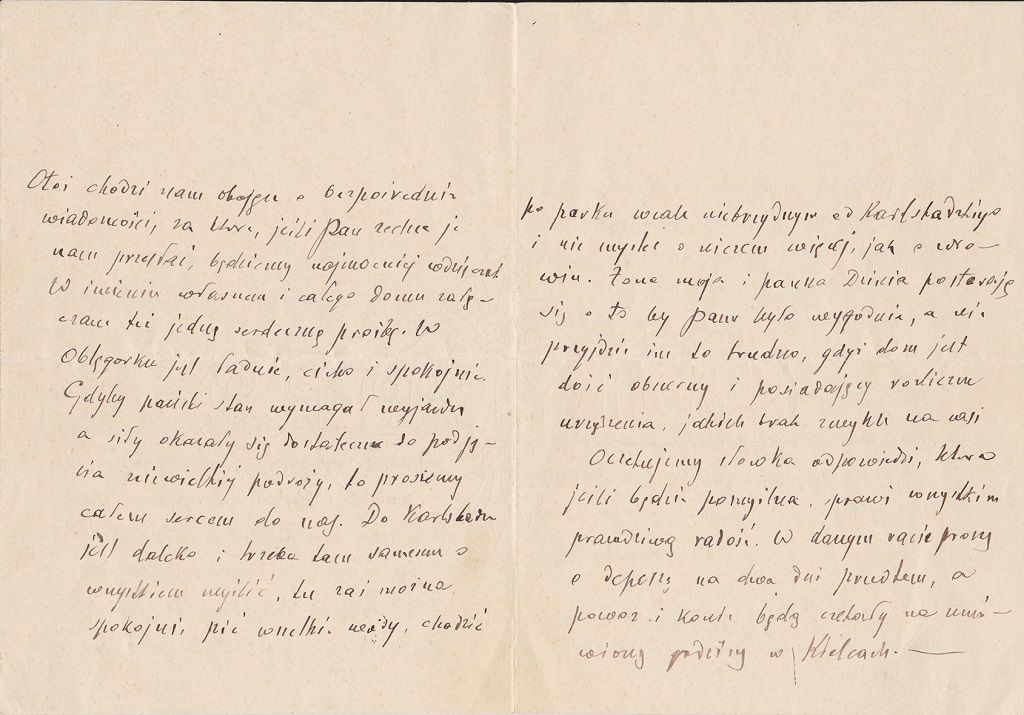 Otóż chodzi nam obojgu o bezpośrednie
wiadomości, za które, jeśli Pan zechce je
nam przesłać, będziemy najmocniej wdzięczni
W imieniu własnem i całego domu załą-
czam też jedną serdeczną prośbę. W
Oblęgorku jest ładnie, cicho i spokojnie.
Gdyby pański stan wymagał wyjazdu
a siły okazały się dostateczne do podję-
cia niewielkiej podróży, to prosimy
całem sercem do nas. Do Karlsbadu
jest daleko i trzeba tam samemu o
wszystkiem myśleć, tu zaś można
spokojnie pić wszelkie wody, chodzić
po parku wcale niebrzydszym od Karlsbadzkiego
i nie myśleć o niczem więcej, jak o zdro-
wiu. Żona moja i panna Dzinia postarają
się o to by Panu było wygodnie, a nie
przyjdzie im to trudno, gdyż dom jest
dość obszerny i posiadający rozliczne
urządzenia, jakich brak zwykle na wsi
Oczekujemy słówka odpowiedzi, które
jeśli będzie pomyślna, sprawi wszystkim
prawdziwą radość. W danym razie proszę
o depeszę na dwa dni przedtem, a
powóz i konie będą czekały na umó-
wioną godzinę w Kielcach. —